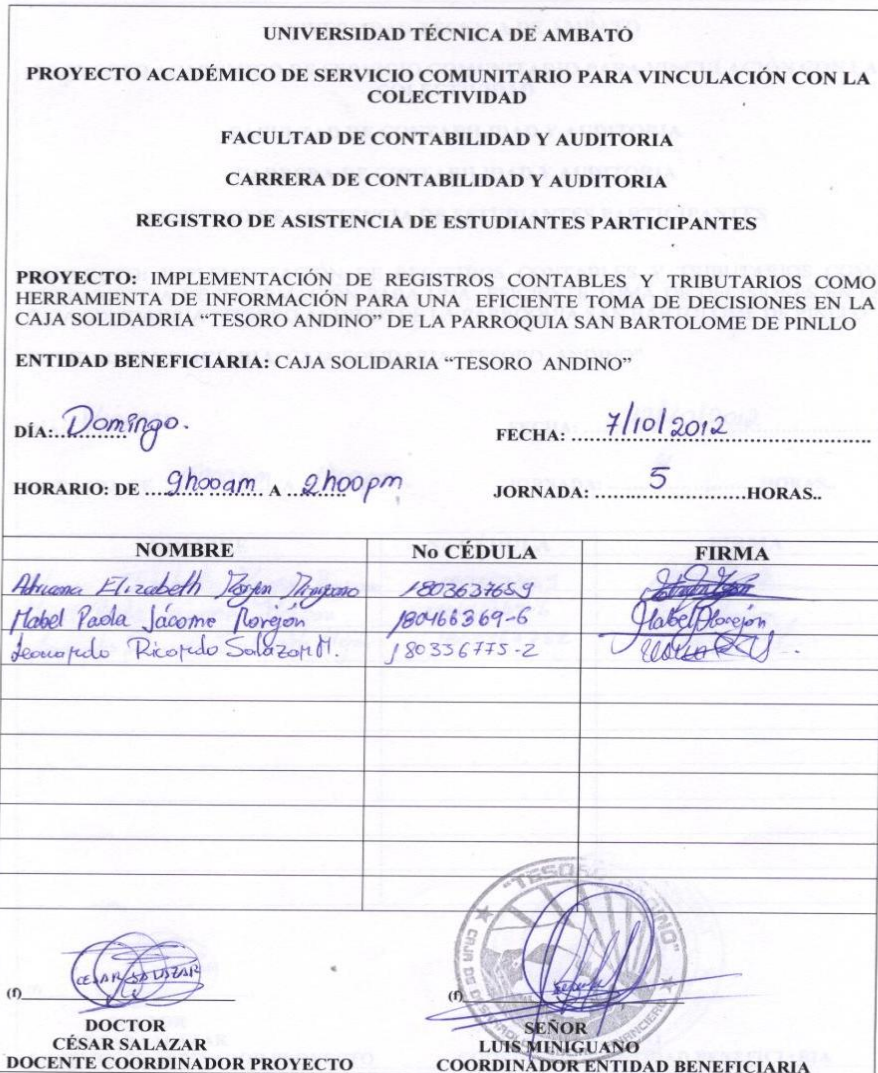 UNIVERSIDAD TÉCNICA DE AMBATO
PROYECTO ACADÉMICO DE SERVICIO COMUNITARIO PARA VINCULACIÓN CON LA
COLECTIVIDAD
FACULTAD DE CONTABILIDAD Y AUDITORIA
CARRERA DE CONTABILIDAD Y AUDITORIA
REGISTRO DE ASISTENCIA DE ESTUDIANTES PARTICIPANTES
PROYECTO: IMPLEMENTACIÓN DE REGISTROS CONTABLES Y TRIBUTARIOS COMO
HERRAMIENTA DE INFORMACIÓN PARA UNA EFICIENTE TOMA DE DECISIONES EN LA
CAJA SOLIDADRIA “TESORO ANDINO” DE LA PARROQUIA SAN BARTOLOME DE PINLLO
ENTIDAD BENEFICIARIA: CAJA SOLIDARIA “TESORO ANDINO”
DÍA: Domingo. FECHA: 7/10/2012
HORARIO: DE 9h00am A 2h00pm JORNADA: 5 HORAS..
NOMBRE No CÉDULA FIRMA
Adriana Elizabeth 1803637659
Mabel Paola Jácome Morejón 180466369-6 Mabel Morejón
Leonardo Ricardo Salazar M. 180336775-2
"TESORO ANDINO"
CESAR SALAZAR
(f) (f)
DOCTOR SEÑOR
CÉSAR SALAZAR LUIS MINIGUANO
DOCENTE COORDINADOR PROYECTO COORDINADOR ENTIDAD BENEFICIARIA